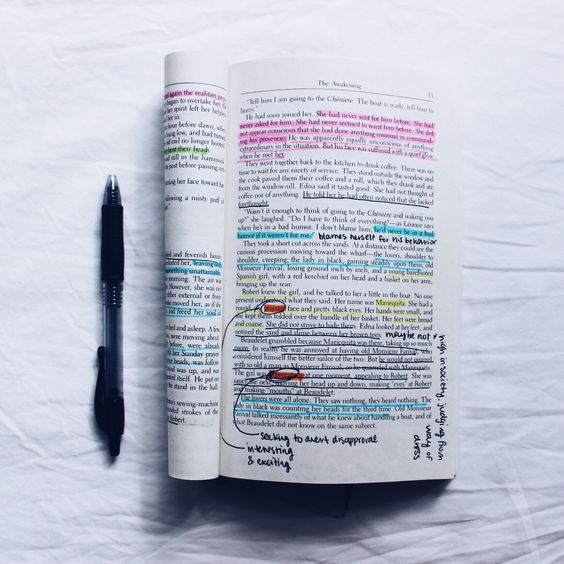 again the realities pres-
began to overtake her,
her spirit left her
helping in
hour before dawn, when
ing low, and had turned
owl no longer hooted
bent their heads.
still in the hammock
post before passing into
ning her face toward her
ollowing a misty puff of
and feverish hours,
her, leaving only
mething unattainable.
morning. The air
However, she was not
ther external or from
moved her, as if she
and freed her soul of
d and asleep. A few,
were moving about
before, were already
her Sunday prayer
her beads, was following
was up, and was
himself. He put on
stand in the hall.
's sewing-machine
strokes of the
Robert.
The Awakening
"Tell him I am going to the Chênière. The boat is ready; tell him to
hurry."
He had soon joined her. She had never sent for him before. She had
never asked for him. She had never seemed to want him before. She did
not appear conscious that she had done anything unusual in command-
ing his presence. He was apparently equally unconscious of anything
extraordinary in the situation. But his face was suffused with a quiet glow
when he met her.
They went together back to the kitchen to drink coffee. There was no
time to wait for any nicety of service. They stood outside the window and
the cook passed them their coffee and a roll, which they drank and ate
from the window-sill. Edna said it tasted good. She had not thought of
coffee nor of anything. He told her he had often noticed that she lacked
forethought.
"Wasn't it enough to think of going to the Chênière and waking you
up?" she laughed. "Do I have to think of everything?—as Léonce says
when he's in a bad humor. I don't blame him; he'd never be in a bad
humor if it weren't for me." blames herself for his behavior
They took a short cut across the sands. At a distance they could see the
curious procession moving toward the wharf—the lovers, shoulder to
shoulder, creeping; the lady in black, gaining steadily upon them; old
Monsieur Farival, losing ground inch by inch, and a young barefooted
Spanish girl, with a red kerchief on her head and a basket on her arm,
bringing up the rear.
Robert knew the girl, and he talked to her a little in the boat. No one
present understood what they said. Her name was Mariequita. She had a
round, face and pretty black eyes. Her hands were small, and
she kept them folded over the handle of her basket. Her feet were broad
and coarse. She did not strive to hide them. Edna looked at her feet, and
noticed the sand and slime between her brown toes. maybe not
Beaudelet grumbled because Mariequita was there, taking up so much
room. In reality he was annoyed at having old Monsieur Farival, who
considered himself the better sailor of the two. But he would not quarrel
with so old a man as Monsieur Farival, so he quarreled with Mariequita.
The girl was at one moment, appealing to Robert. She was
the next, moving her head up and down, making "eyes" at Robert
and making "mouths" at Beaudelet.
The lovers were all alone. They saw nothing, they heard nothing. The
lady in black was counting her beads for the third time. Old Monsieur
Farival talked incessantly of what he knew about handling a boat, and of
what Beaudelet did not know on the same subject.
high in society judging from
way of
dress
seeking to avert disapproval
interesting
& exciting